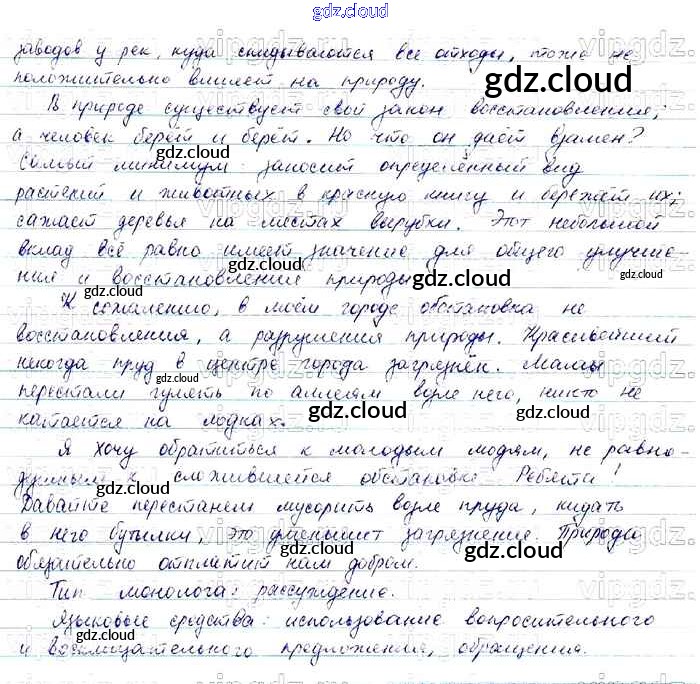 gdz.cloud
заводов у рек, куда скидываются все отходы, тоже не
положительно влияет на природу.
gdz.cloud
В природе существует свой закон восстановления,
а человек берёт и берёт. Но что он даёт взамен?
gdz.cloud
gdz.cloud
Самый минимум: заносит определённый вид
растений и животных в красную книгу и бережёт их;
gdz.cloud
сажает деревья на местах вырубки. Этот небольшой
вклад всё равно имеет значение для общего улучше-
gdz.cloud
gdz.cloud
ния и восстановления природы.
gdz.cloud
К сожалению, в моём городе обстановка не
восстановления, а разрушения природы. Красивейший
некогда пруд в центре города загрязнён. Мамы
gdz.cloud
gdz.cloud
перестали гулять по аллеям возле него, никто не
катается на лодках.
gdz.cloud
gdz.cloud
Я хочу обратиться к молодым людям, не равно-
душным к сложившейся обстановке. Ребята!
gdz.cloud
gdz.cloud
Давайте перестанем мусорить возле пруда, кидать
в него бутылки, это уменьшит загрязнение. Природа
gdz.cloud
gdz.cloud
обязательно отплатит нам добром.
Тип монолога: рассуждение.
Языковые средства: использование вопросительного
gdz.cloud
gdz.cloud
и восклицательного предложения, обращения.